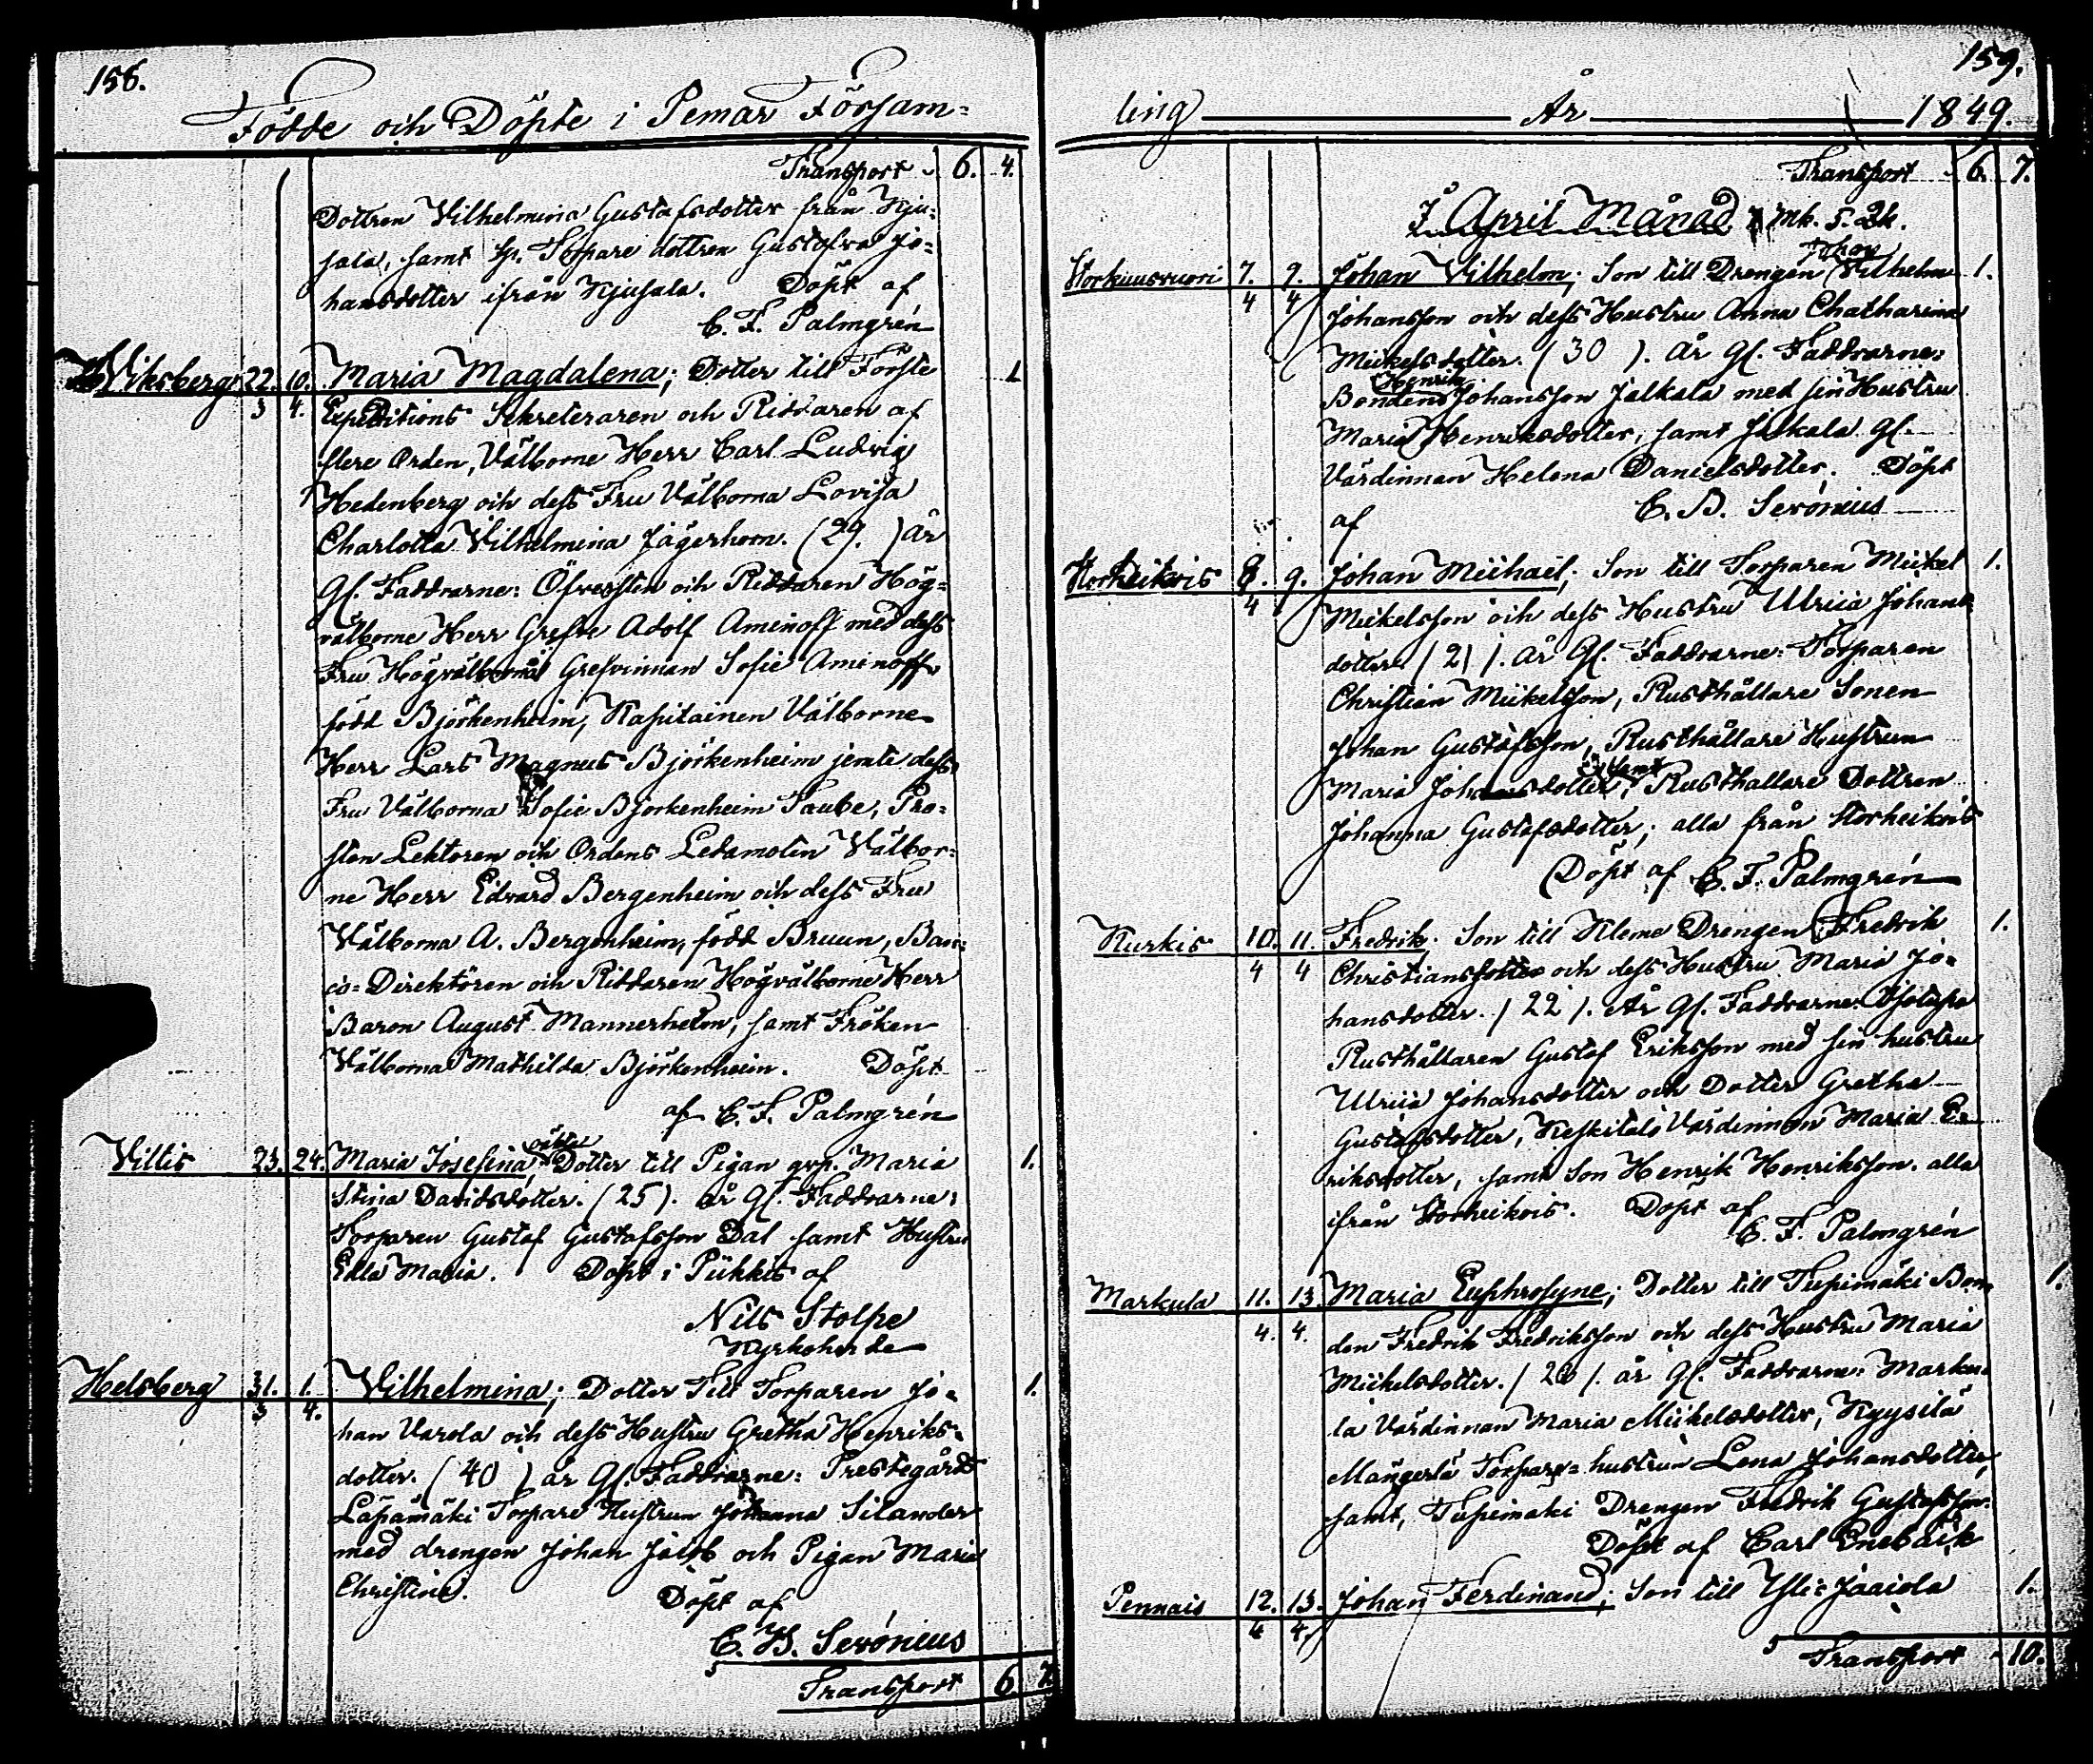 158.
Födde och Döpte i Pemar Försam=
Transport 6. 4.
Dottren Vilhelmina Gustafsdotter från Kju=
sala, samt Torpare dottren Gustafva Jo=
hansdotter ifrån Kjusala. Döpt af
C. F. Palmgrén
Viksberg 22. 10. Maria Magdalena; Dotter till Förste 1
3 4. Expeditions Sekreteraren och Riddaren af
flere Orden, Välborne Herr Carl Ludvig
Hedenberg och dess Fru Välborna Lovisa
Charlotta Vilhelmina Jägerhorn. (29.) år
gl. Faddrarne: Öfversten och Riddaren Hög=
välborne Herr Grefve Adolf Aminoff med dess
Fru Högvälborna Grefvinnan Sofie Aminoff
född Björkenheim, Kapitainen Välborne
Herr Lars Magnus Björkenheim jemte dess
Fru Välborna Sofie Björkenheim Taube, Pro=
sten Lektoren och Ordens Ledamoten Välbor=
ne Herr Edvard Bergenheim och dess Fru
Välborna A. Bergenheim, född Bruun, Ban=
co=Direktören och Riddaren Högvälborne Herr
Baron August Mannerheim, samt Fröken
Välborna Mathilda Björkenheim. Döpt
af C. F. Palmgrén
Viltis 23. 24. Maria Josefina, Dotter till Pigan Maria 1.
Stina Davidsdotter. (25). år gl. Faddrarne:
Torparen Gustaf Gustafsson Dal samt Hustru
Edla Maria. Döpt i Pikkis af
Nils Stolpe
Kyrkoherde
Helsberg 31. 1. Vilhelmina; Dotter Till Torparen Jo= 1.
3 4. han Varola och dess Hustru Gretha Henriks=
dotter. (40) år gl. Faddrarne: Prestegårds
Lapamäki Torpare Hustrun Johanna Silander
med drengen Johan Jakob och Pigan Maria
Christina. Döpt af
C. B. Serónius
Transport 6 7.
159.
ling År 1849.
Transport 6. 7.
I April Månad
Johan
Storkuusvuori 7. 9. Johan Vilhelm; Son till Drengen Vilhelm 1.
4 4 Johansson och dess Hustru Anna Chatharina
Mickelsdotter. (30). år gl. Faddrarne:
Henrik
Bonden Johansson Jalkala med sin Hustru
Maria Henriksdotter, samt Jalkala gl.
Värdinnan Helena Danielsdotter. Döpt
af C. B. Serónius
Storheikois 8. 9. Johan Michail; Son till Torparen Mickel 1.
4 Mickelsson och dess Hustru Ulrica Johans
dotter. (21). år gl. Faddrarne: Torparen
Christian Mickelsson, Rusthållare Sonen
Johan Gustafsson, Rusthållare Hustrun
samt
Maria Johansdotter, Rusthållare Dottren
Johanna Gustafsdotter; alla från Storheikois
Döpt af C. F. Palmgrén
Kurkis 10. 11. Fredrik; Son till Kleme Drengen Fredrik 1.
4 4 Christiansson och dess Hustru Maria Jo=
hansdotter. (22). År gl. Faddrarne:
Rusthållaren Gustaf Eriksson med sin hustru
Ulrica Johansdotter och Dotter Gretha
Gustafsdotter, Keskitalo Värdinnan Maria E=
riksdotter, samt Son Henrik Henriksson. alla
ifrån Storheikois. Döpt af
C. F. Palmgrén
Markula 11. 13. Maria Euphrosyne; Dotter till Tupimäki Bon 1.
4. 4. den Fredrik Fredriksson och dess Hustru Maria
Michelsdotter. år gl. Faddrarne: Marku=
la Värdinnan Maria Mickelsdotter, Kyysilä
Mängerlä Torpare=hustrun Lena Johansdotter,
samt, Tupimäki Drengen Fredrik Gustafsson.
Döpt af Carl Enebäck
Pennais 12. 13. Johan Ferdinand; Son till Yli=Jaaiola 1.
4 4
Transport 10.